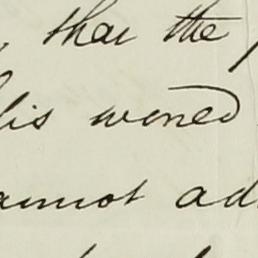 , that the
his wored
annot ad